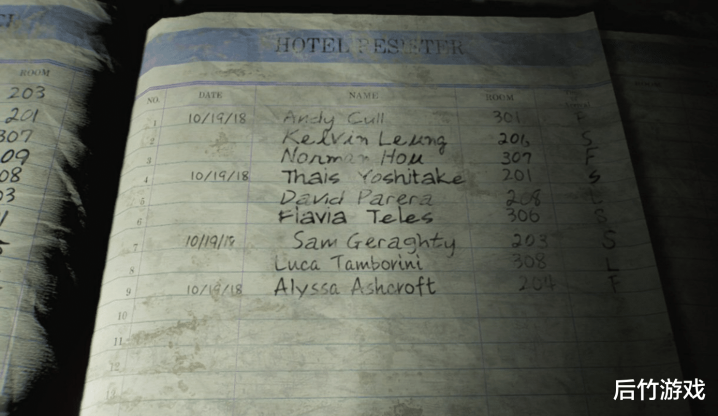 ROOM
203
201
307
09
08
03
HOTEL REGISTER
NO. DATE NAME ROOM
1 10/19/18 Andy Cull 301 F
2 Kelvin Leung 206 S
3 Norman Hou 307 F
4 10/19/18 Thais Yoshitake 201 S
5 David Parera 208 L
6 Flavia Teles 306 S
7 10/19/18 Sam Geraghty 203 S
8 Luca Tamborini 308 L
9 10/19/18 Alyssa Ashcroft 204 F
10
11
12
后竹游戏